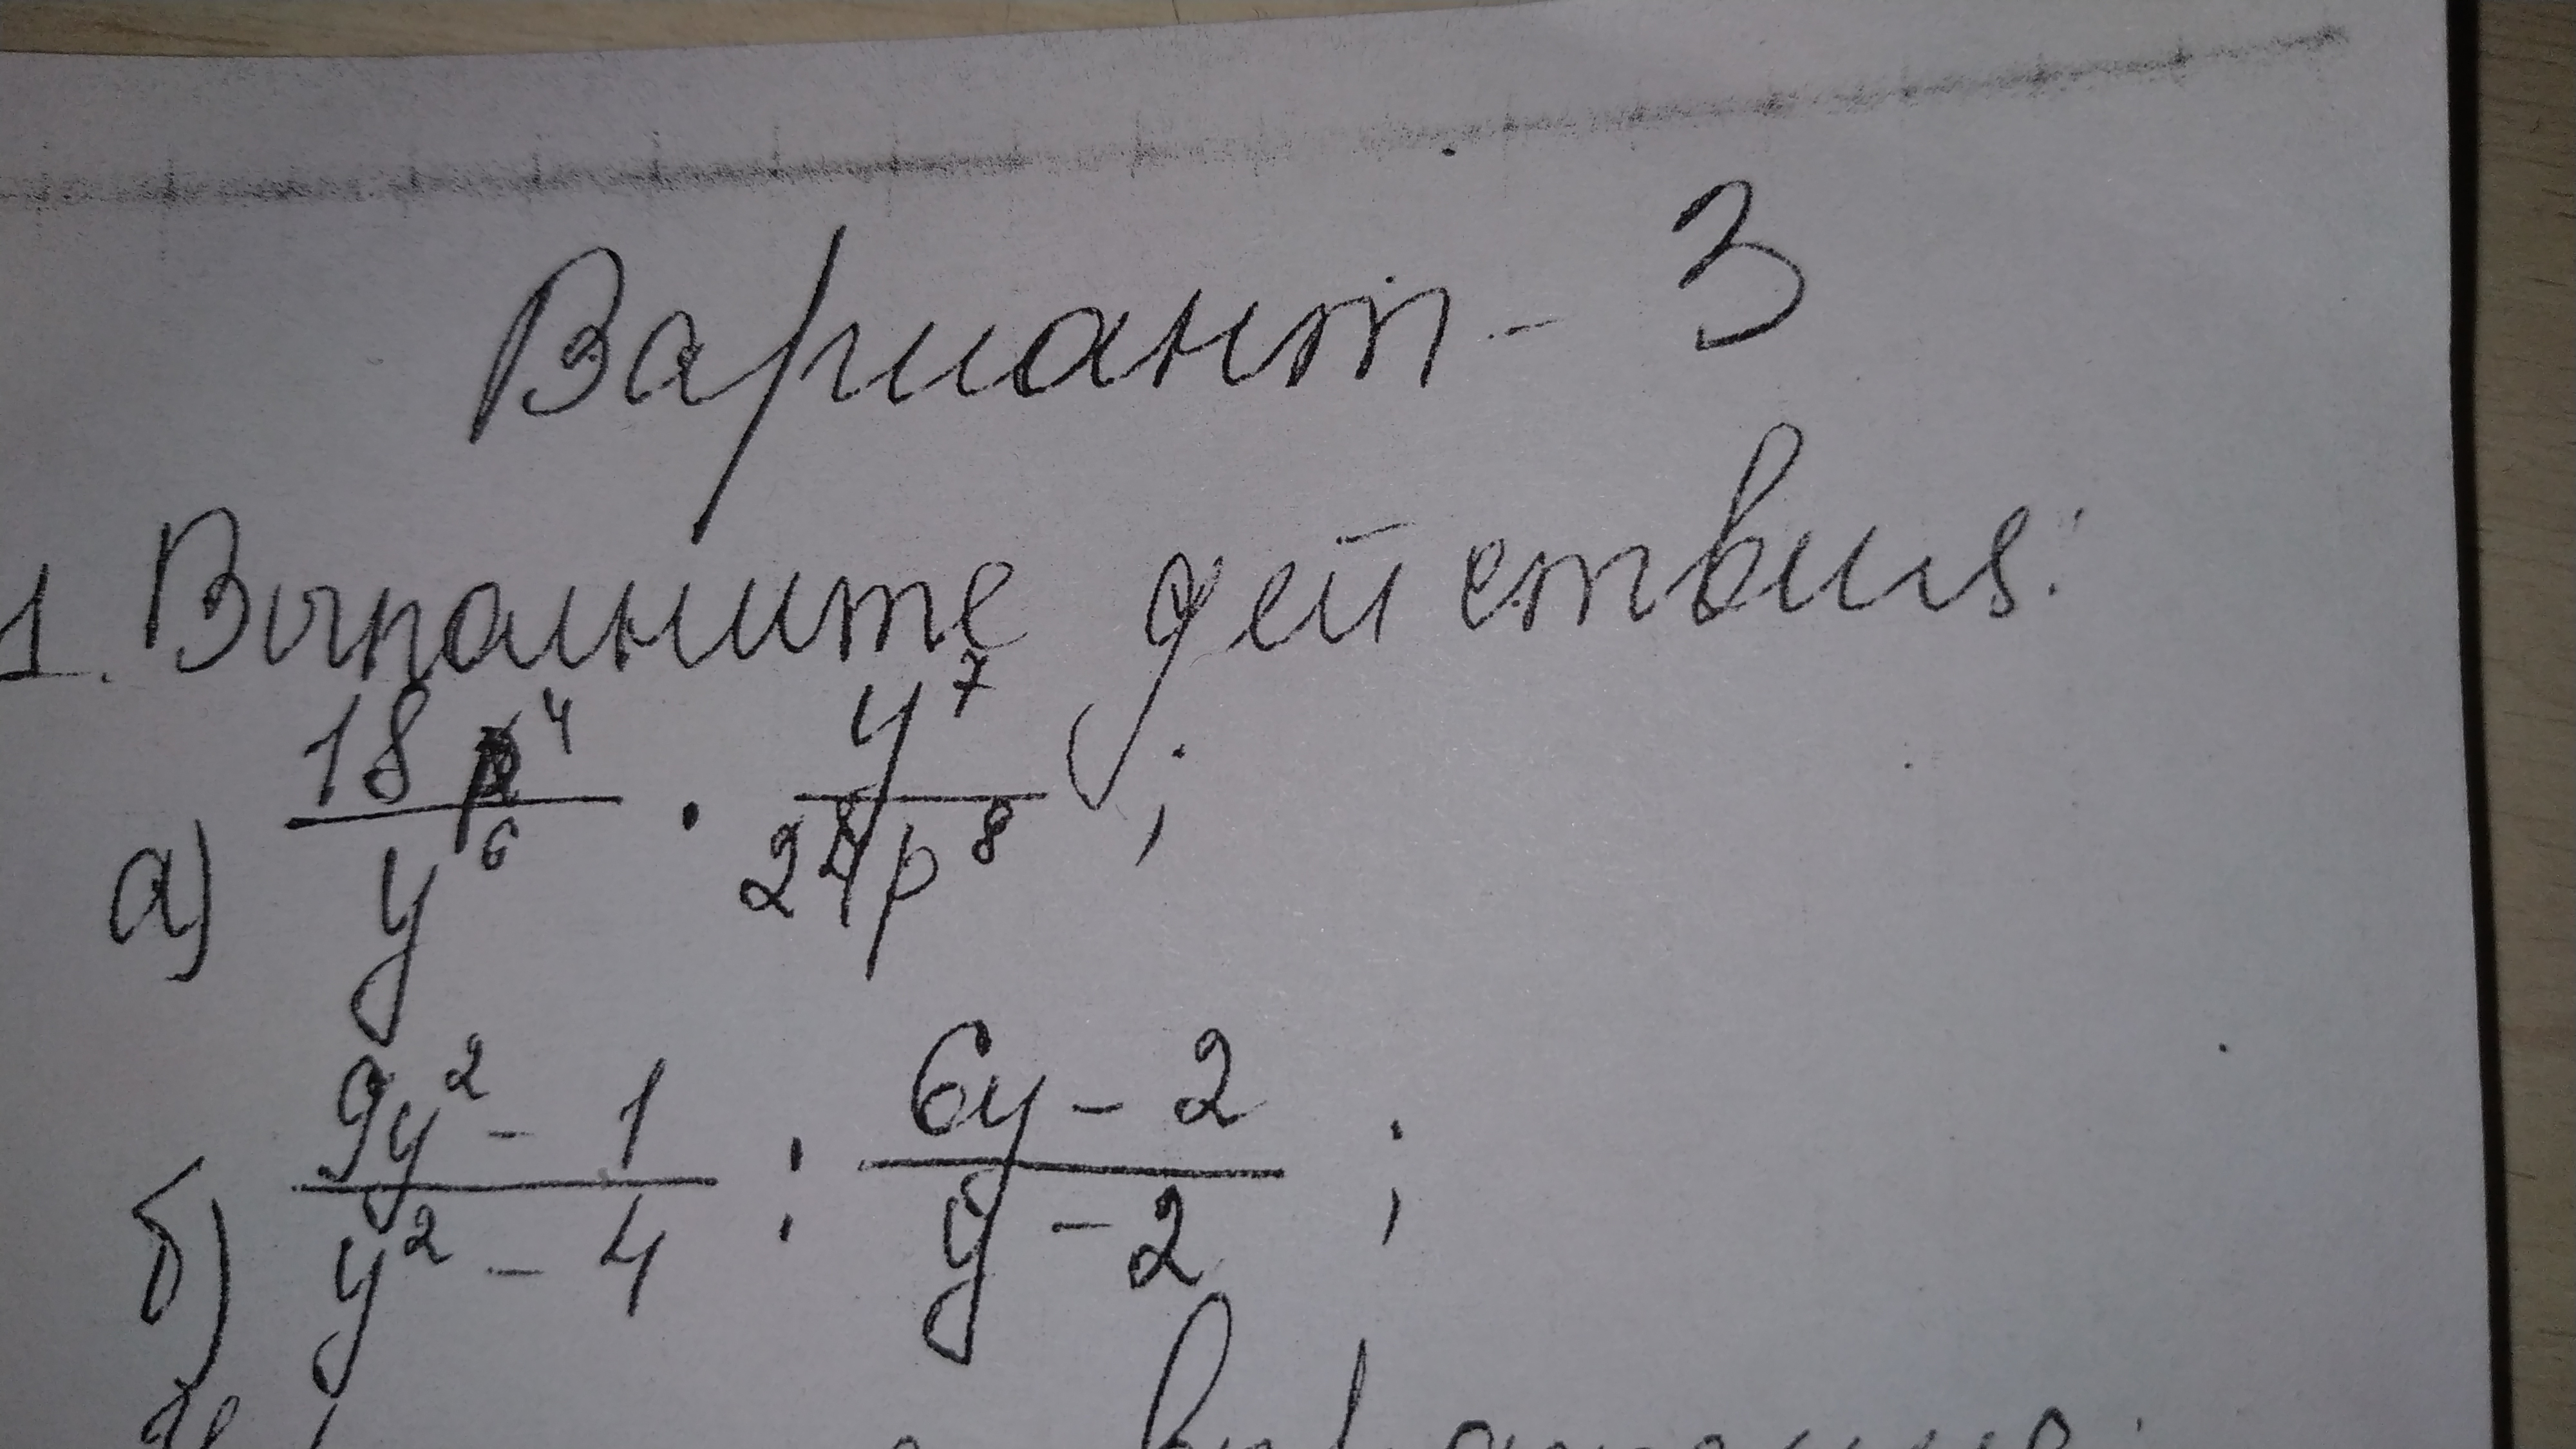 Вариант - 3
1. Выполните действия:
а) 18p⁴/y⁶ · y⁷/24p⁸ ;
б) 9y² - 1/y² - 4 : 6y - 2/y - 2 ;